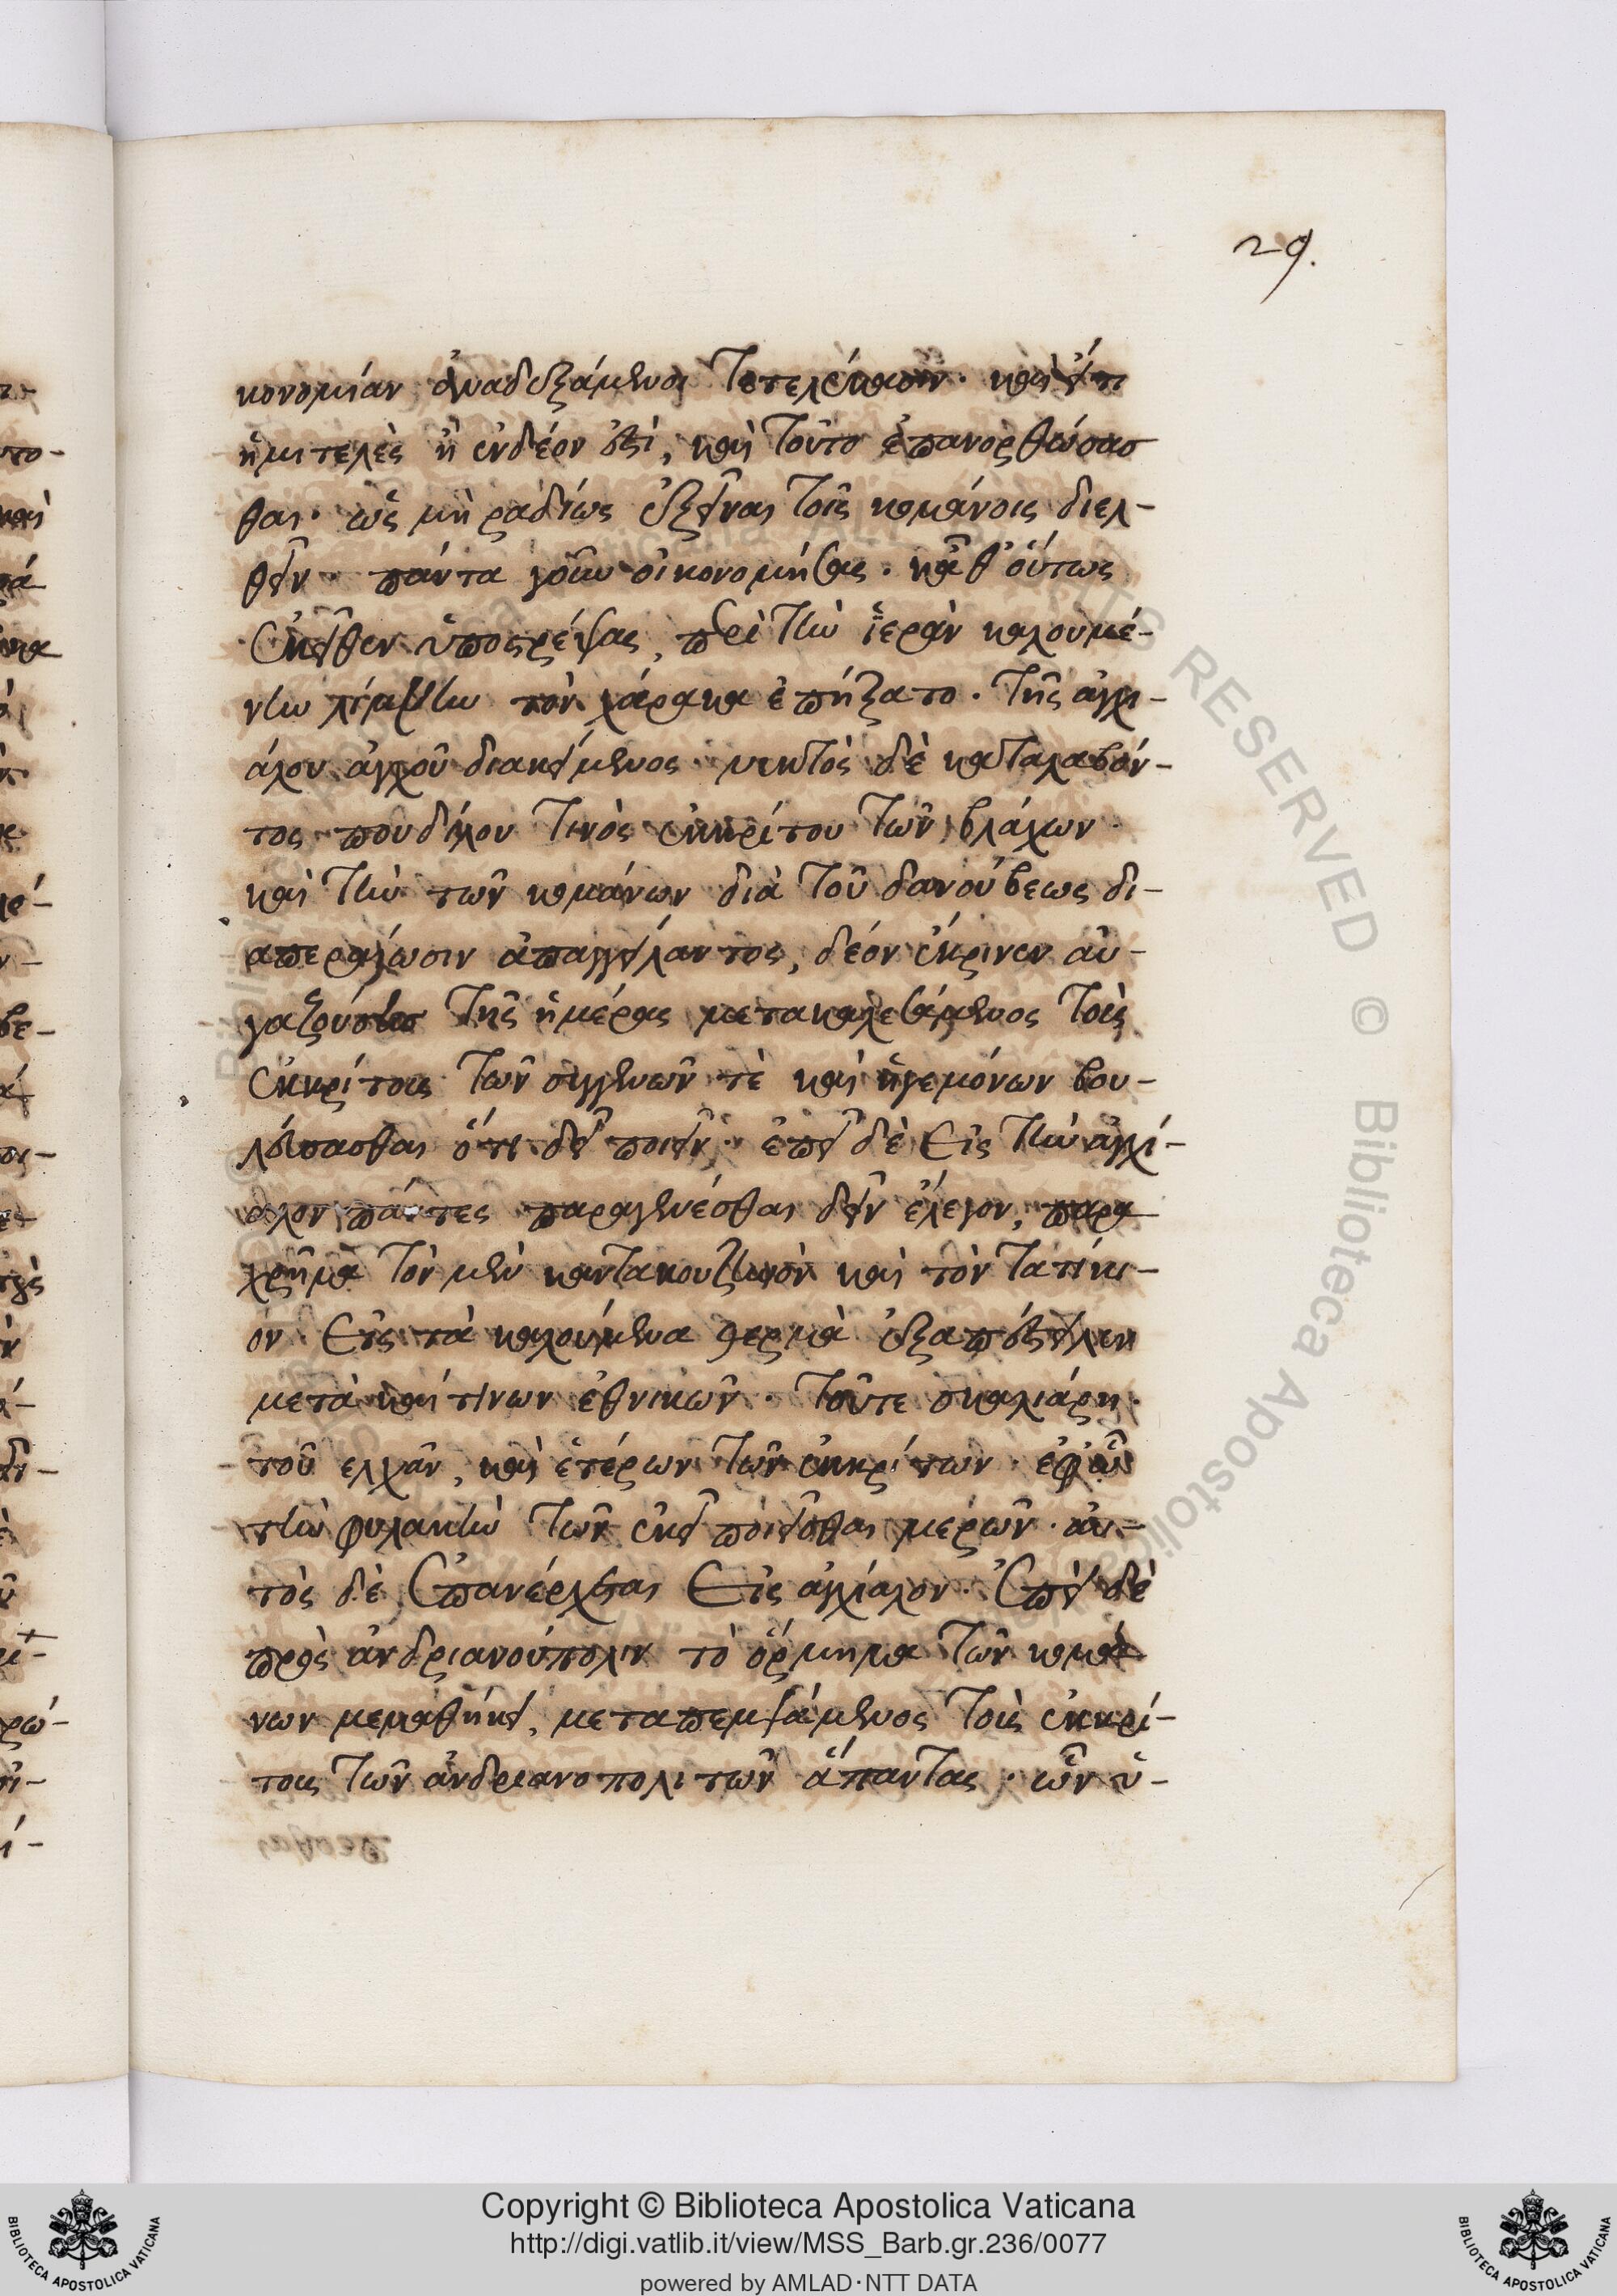 29.
κονομίαν ἀναδεξάμενοι τετελέκασιν. καὶ εἴτι
ἡμιτελὲς ἢ ἐνδέον ἐστὶ, καὶ τοῦτο ἐπανορθώσασ
θαι. ὡς μὴ ῥαδίως ἐξεῖναι τοῖς κομάνοις διελ-
θεῖν. πάντα γοῦν οἰκονομήσας. κᾆθ' οὕτως
ἐκεῖθεν ὑποστρέψας, περὶ τὴν ἱερὰν καλουμέ-
νην λίμνην τὸν χάρακα ἐπήξατο. τῆς ἀγχι-
άλου ἀγχοῦ διακείμενος. νυκτὸς δὲ καταλαβόν-
τος πουδίλου τινὸς ἐκκρίτου τῶν βλάχων.
καὶ τὴν τῶν κομάνων διὰ τοῦ δανούβεως δι-
απεραίωσιν ἀπαγγείλαντος, δέον ἔκρινεν αὐ-
γαζούσης τῆς ἡμέρας μετακαλεσάμενος τοὺς
ἐκκρίτους τῶν συγγενῶν τὲ καὶ ἡγεμόνων βου-
λεύσασθαι ὅτι δεῖ ποιεῖν. ἐπεὶ δὲ εἰς τὴν ἀγχί-
αλον πάντες παραγενέσθαι δεῖν ἔλεγον, παρα
χρῆμα τὸν μὲν καντακουζηνὸν καὶ τὸν τατίκι-
ον εἰς τὰ καλούμενα θερμὰ ἐξαπέστειλεν
μετὰ καί τινων ἐθνικῶν. τοῦτε σκαλιάρη.
τοῦ ελχᾶν, καὶ ἑτέρων τῶν ἐκκρίτων. ἐφ' ᾧ
τὴν φυλακὴν τῶν ἐκεῖ ποιεῖσθαι μερῶν. αὐ-
τὸς δὲ ἐπανέρχεται εἰς ἀγχίαλον. ἐπεὶ δὲ
πρὸς ἀνδριανούπολιν τὸ ὅρμημα τῶν κομά
νων μεμαθήκει, μεταπεμψάμενος τοὺς ἐκκρί-
τους τῶν ἀνδριανοπολιτῶν ἅπαντας. ὧν ὑ-
Copyright © Biblioteca Apostolica Vaticana
http://digi.vatlib.it/view/MSS_Barb.gr.236/0077
powered by AMLAD·NTT DATA